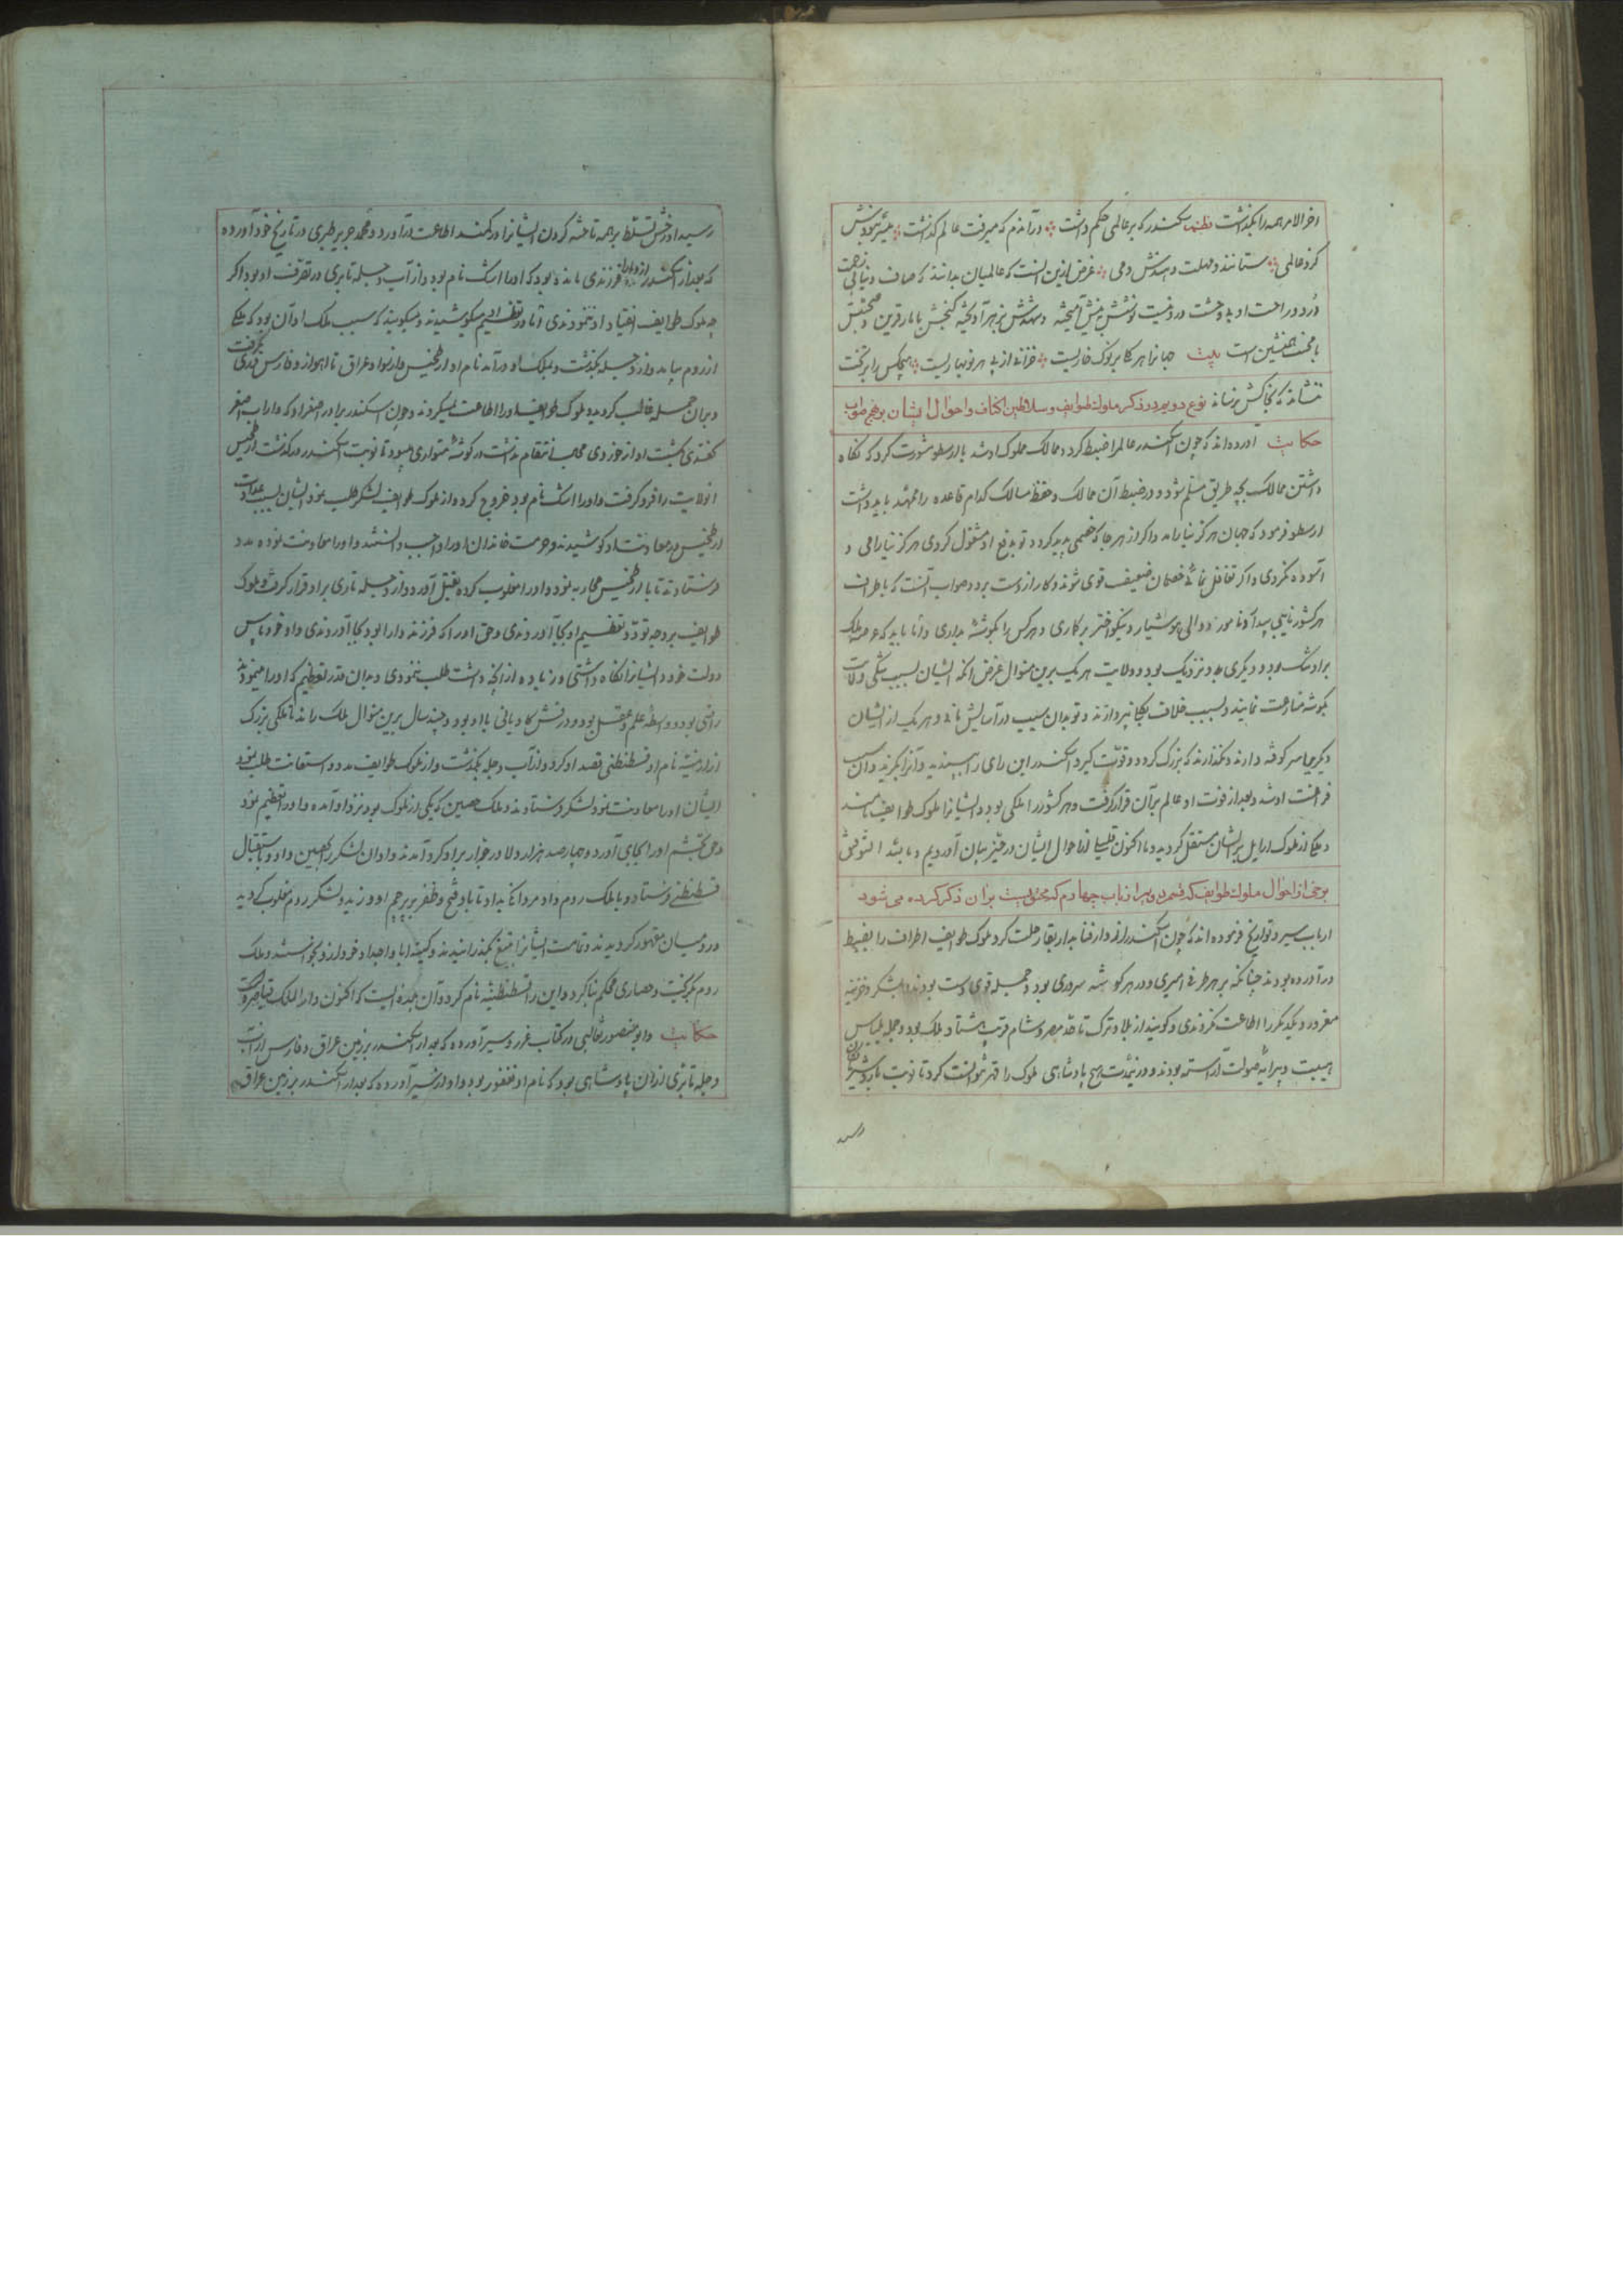 اخر الامر همه را بگذاشت نظم سکندر که بر عالمی حکم داشت در آندم که میرفت عالم گذاشت میسر نبودش
کزو عالمی ستانند و مهلت دهندش دمی غرض ازین آنست که عالمیان بدانند که صاف دنیا بی زحمت
درد و راحت او بی وحشت درد نیست نوشش با نیش آمیخته و شهدش بزهر آویخته گنجش با مار قرین و صحبتش
با محنت همنشین است بیت جهانرا هر کلا بر نوک خاریست خزانی از پی هر نوبهاریست هیچکس را بر تخت
ننشاند که بخاکش نرساند نوع دویم در ذکر ملوک طوایف و سلاطین اکناف و احوال ایشان بر نهج صواب
حکایت آورده‌اند که چون اسکندر عالم را ضبط کرد و ممالک مملوک او شد با ارسطو مشورت کرد که نگاه
داشتن ممالک بچه طریق مسلم شود و در ضبط آن ممالک و حفظ مسالک کدام قاعده را ممهد باید داشت
ارسطو فرمود که جهان هرگز نیارامد و اگر از هر جا که خصمی پدید گردد تو بدفع او مشغول گردی هرگز نیارامی و
آسوده نگردی و اگر تغافل نمائی خصمان ضعیف قوی شوند و کار از دست برود صواب آنست که باطراف
هر کشور نایبی پیدا و نامور و والی هوشیار و نیکو اختر برگماری و هر کس را بگوشه بداری و آنا باید که عرصه ملک
بر او تنگ بود و دیگری بدو نزدیک بود و ولایت هر یک برین منوال غرض آنکه ایشان بسبب تنگی ولایت
بگوشه منازعت نمایند و بسبب خلاف بیکجا نپردازند و تو بدان سبب در آسایش مانی و هر یک از ایشان
دیگریرا سرکوفته دارند و نگذارند که بزرگ گردد و قوت گیرد اسکندر این رای را پسندید و آنرا گزید و آن سبب
فراغت او شد و بعد از فوت او عالم بر آن قرار گرفت و هر کشور را ملکی بود و ایشانرا ملوک طوایف نامند
و ملک از ملوک اوایل بر ایشان منتقل گردید و ما اکنون قلیلی از احوال ایشان در حیز بیان آوردیم و بالله التوفیق
برخی از احوال ملوک طوایف که قسم دویم از باب چهارم که محتویست بر آن ذکر کرده می شود
ارباب سیر و تواریخ فرموده‌اند که چون اسکندر از دار فنا بدار بقا رحلت کرد ملوک طوایف اطراف را بضبط
در آورده بودند چنانکه بر هر طرفی امیری و در هر گوشه سروری بود و جمله قوی دست بودند و بلشکر و خزینه
مغرور و یکدیگر را اطاعت نکردندی و گویند از بلاد ترک تا حد مصر و شام قریب هشتاد ملک بود و جمله بلباس
هیبت و پیرایه صولت آراسته بودند و در نیمدت هیچ پادشاهی ملوک را قهر نتوانست کرد تا نوبت باردشیر بابکان
رسید
رسید او رخش تسلط بر همه تاخته گردن ایشانرا در کمند اطاعت درآورد و محمد جریر طبری در تاریخ خود آورده
که بعد از اسکندر از دارا فرزندی مانده بود که او را اشک نام بود و از آب دجله تا بری در تصرف او بود و اگر
چه ملوک طوایف انقیاد او ننمودندی اما در تعظیم او میکوشیدند و میگویند که سبب ملک او آن بود که ملکی
از روم بیامد و از دجله بگذشت و بملک او درآمد نام او ارطخیس و از سواد عراق تا اهواز و فارس فدی بگرفت
و بران جمله غالب گردید و ملوک طوایف او را اطاعت نمیکردند و چون اسکندر برادر اصغر او که داراب اصغر
گفتندی بکشت او از خوزدی مجال انتقام نداشت در گوشه متواری میبود تا نوبت اسکندر درگذشت ارطخیس
انولایت را فرو گرفت و او را اشک نام بود خروج کرده و از ملوک طوایف لشکر طلب نمود ایشان بسبب عداوت
ارطخیس در معاونت او کوشیدند و حرمت خاندان او را واجب دانستند و او را معاونت نموده مدد
فرستادند تا با ارطخیس محاربه نمود و او را مغلوب کرده بقتل آورد و از دجله تا ری بر او قرار گرفت و ملوک
طوایف بر وجه تودد تعظیم او بجا آوردندی و حق او را که فرزند دارا بود بجا آوردندی و او خود پاس
دولت خود و ایشانرا نگاه داشتی و زیاده از آنچه داشت طلب ننمودی و بدان قدر تعظیم که او را مینمودند
راضی بود و واسطه علم و عقل بود و درفش کاویانی با او بود و چند سال برین منوال ملک راند تا ملکی بزرگ
از ارمنیه نام او قسطنطنی قصد او کرد و از آب دجله بگذشت و از ملوک طوایف مدد و استعانت طلب نمود
ایشان او را معاونت نمود لشکر فرستادند و ملک حصین که یکی از ملوک بود نزد او آمده و او را تعظیم نمود
و حق تجشم او را بجای آورد و چهار صد هزار دلاور خونخوار بر او گرد آمدند و او آن لشکر را بحصین داد و باستقبال
قسطنطنی فرستاد و با ملک روم داد مردانگی بداد تا باد فتح و ظفر بر پرچم او وزید و لشکر روم مغلوب گردید
و رومیان مقهور گردیدند و تمامت ایشانرا بتیغ بگذرانیدند و کینه آبا و اجداد خود ازو بخواستند و ملک
روم بگریخت و حصاری محکم بنا کرد و این را قسطنطنیه نام کرد و آن بلده ایست که اکنون دار الملک قیاصره است
حکایت و ابو منصور ثعالبی در کتاب غرر و سیر آورده که بعد از اسکندر بر زمین عراق و فارس از آب
دجله تا بری از ان پادشاهی بود که نام او فغفور بود و او در سیر آورده که بعد از اسکندر بر زمین عراق